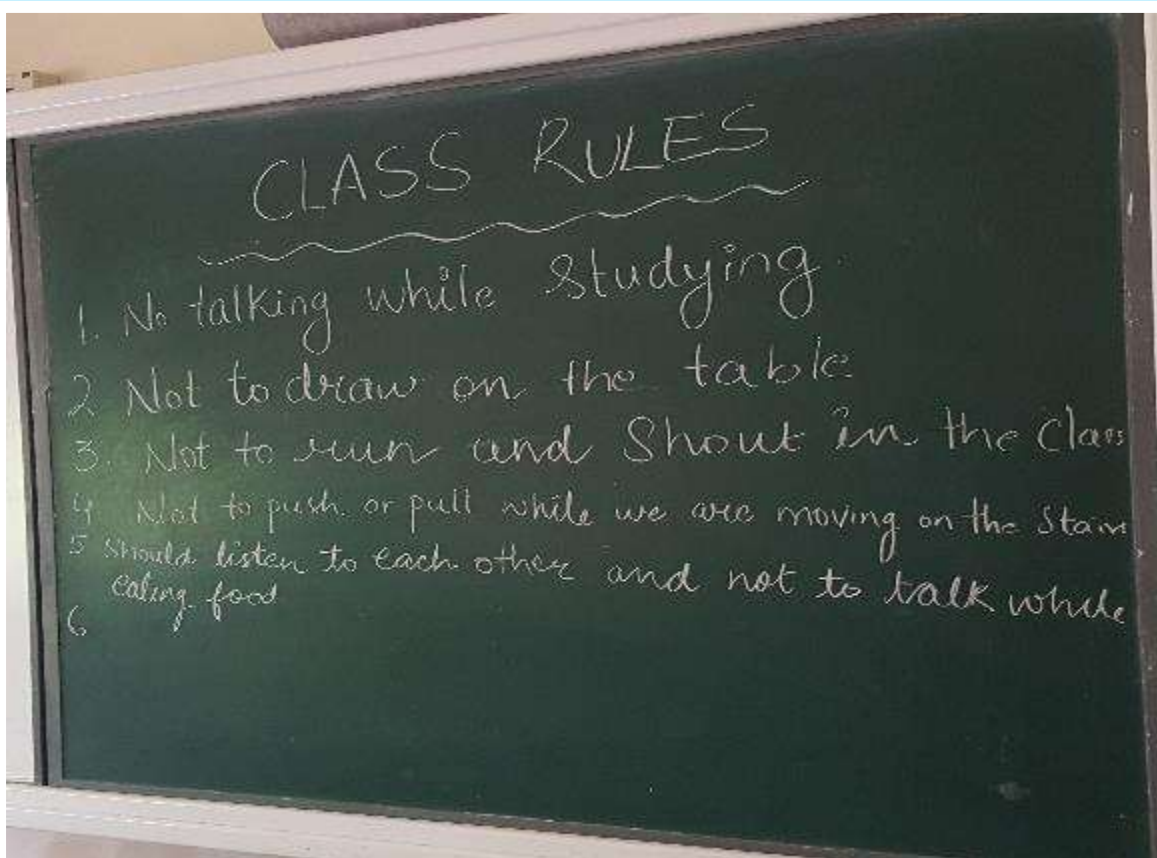 CLASS RULES
1. No talking while studying.
2 Not to draw on the table
3. Not to run and Shout in the Class
4 Not to push or pull while we are moving on the Stairs
5 Should listen to each other and not to talk while
eating food
6